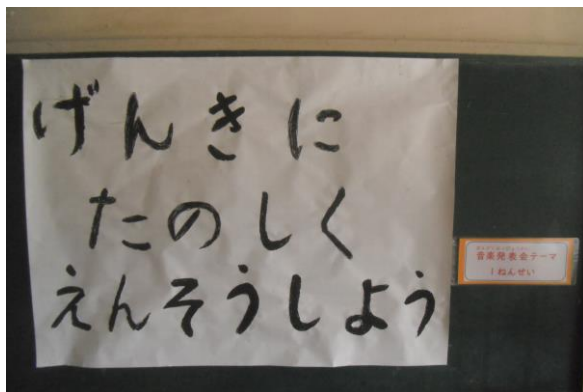 げんきに
たのしく
えんそうしよう
音楽発表会テーマ
1ねんせい